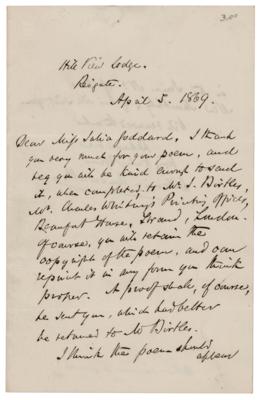 3.00
Hill View Lodge.
Reigate.
April 5. 1869.
Dear Miss Julia Goddard, I thank
you very much for your poem, and
beg you will be kind enough to send
it, when completed, to Mr. S. Birtles,
Mr. Charles Whiting's Printing Offices,
Beaufort House, Strand, London.
Of course, you will retain the
copyright of the poem, and can
reprint it in any form you think
proper. A proof shall, of course,
be sent you, which had better
be returned to Mr Birtles.
I think the poem should
appear